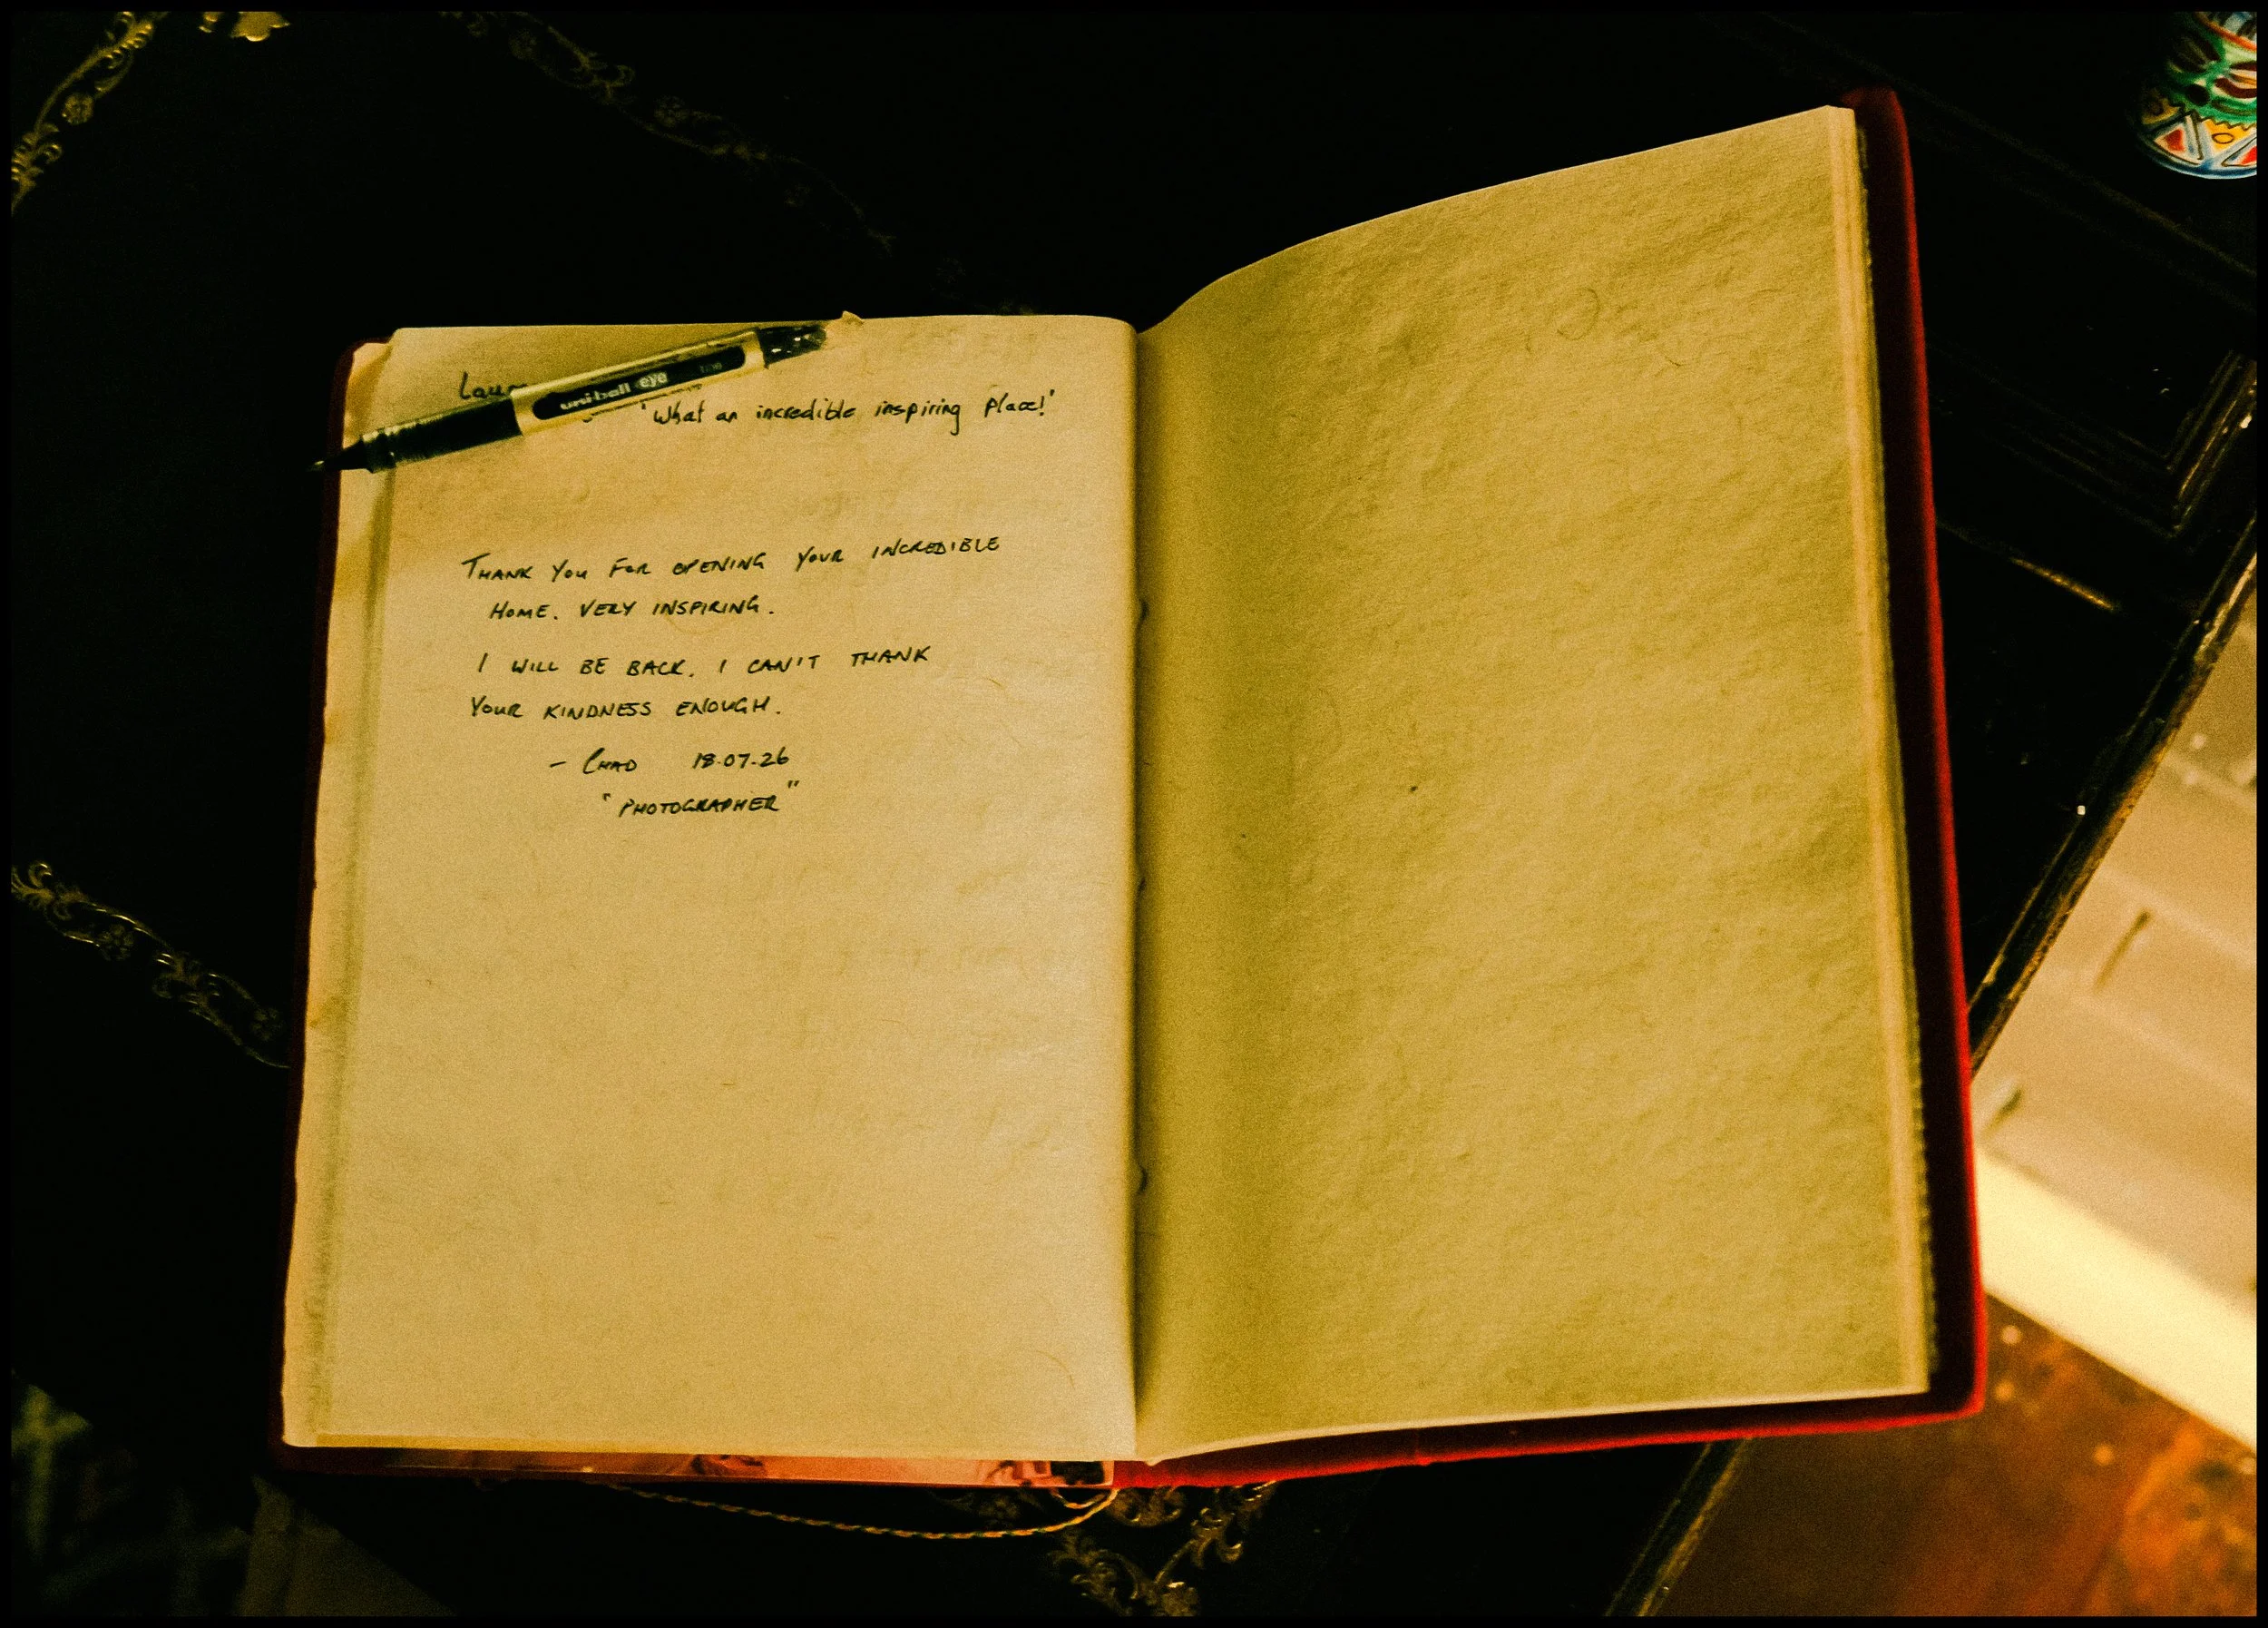 'What an incredible inspiring place!'
uni-ball eye fine
THANK YOU FOR OPENING YOUR INCREDIBLE
HOME. VERY INSPIRING.
I WILL BE BACK. I CAN'T THANK
YOUR KINDNESS ENOUGH.
- CHAD 18.07.26
"PHOTOGRAPHER"